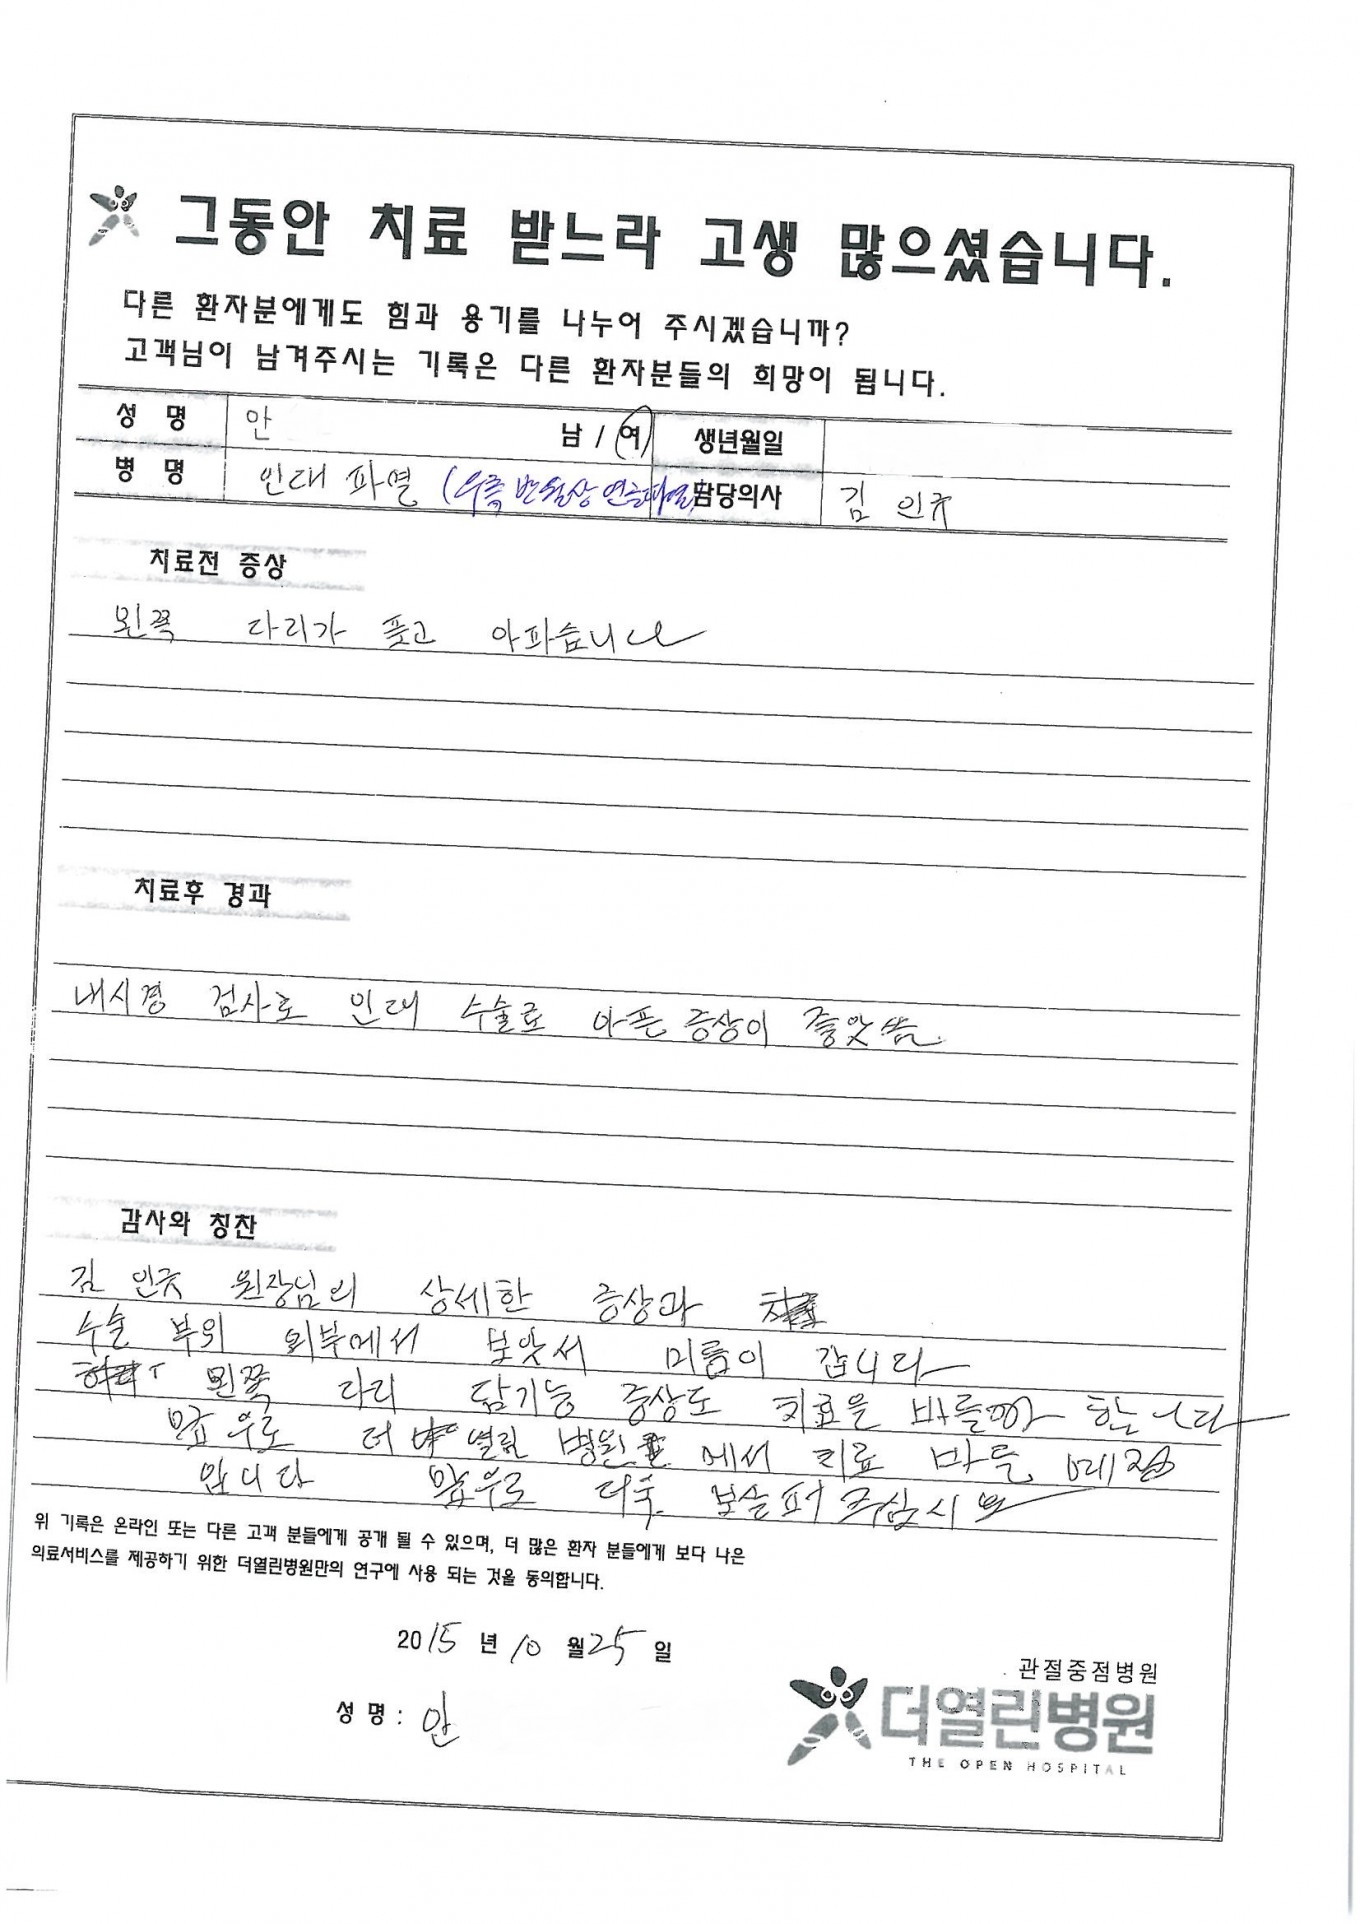 그동안 치료 받느라 고생 많으셨습니다.
다른 환자분에게도 힘과 용기를 나누어 주시겠습니까?
고객님이 남겨주시는 기록은 다른 환자분들의 희망이 됩니다.
성 명 안 남 / 여 생년월일
병 명 인대 파열 (우측 반월상 연골파열) 담당의사 김 인규
치료전 증상
왼쪽 다리가 풋고 아파습니다
치료후 경과
내시경 검사로 인대 수술로 아픈 증상이 좋앗씀
감사와 칭찬
김 인규 원장님의 상세한 증상과
수술 부위 외부에서 보앗서 미름이 갑니다
왼쪽 다리 증상도 치료을 바들여 합니다
우로 더 열린 병원 에서 치료 바들 예정
입니다 우로 더욱 보슬퍼 주십시요
위 기록은 온라인 또는 다른 고객 분들에게 공개 될 수 있으며, 더 많은 환자 분들에게 보다 나은
의료서비스를 제공하기 위한 더열린병원만의 연구에 사용 되는 것을 동의합니다.
2015 년 10 월 25 일
성 명 : 안
관절중점병원
더열린병원
THE OPEN HOSPITAL